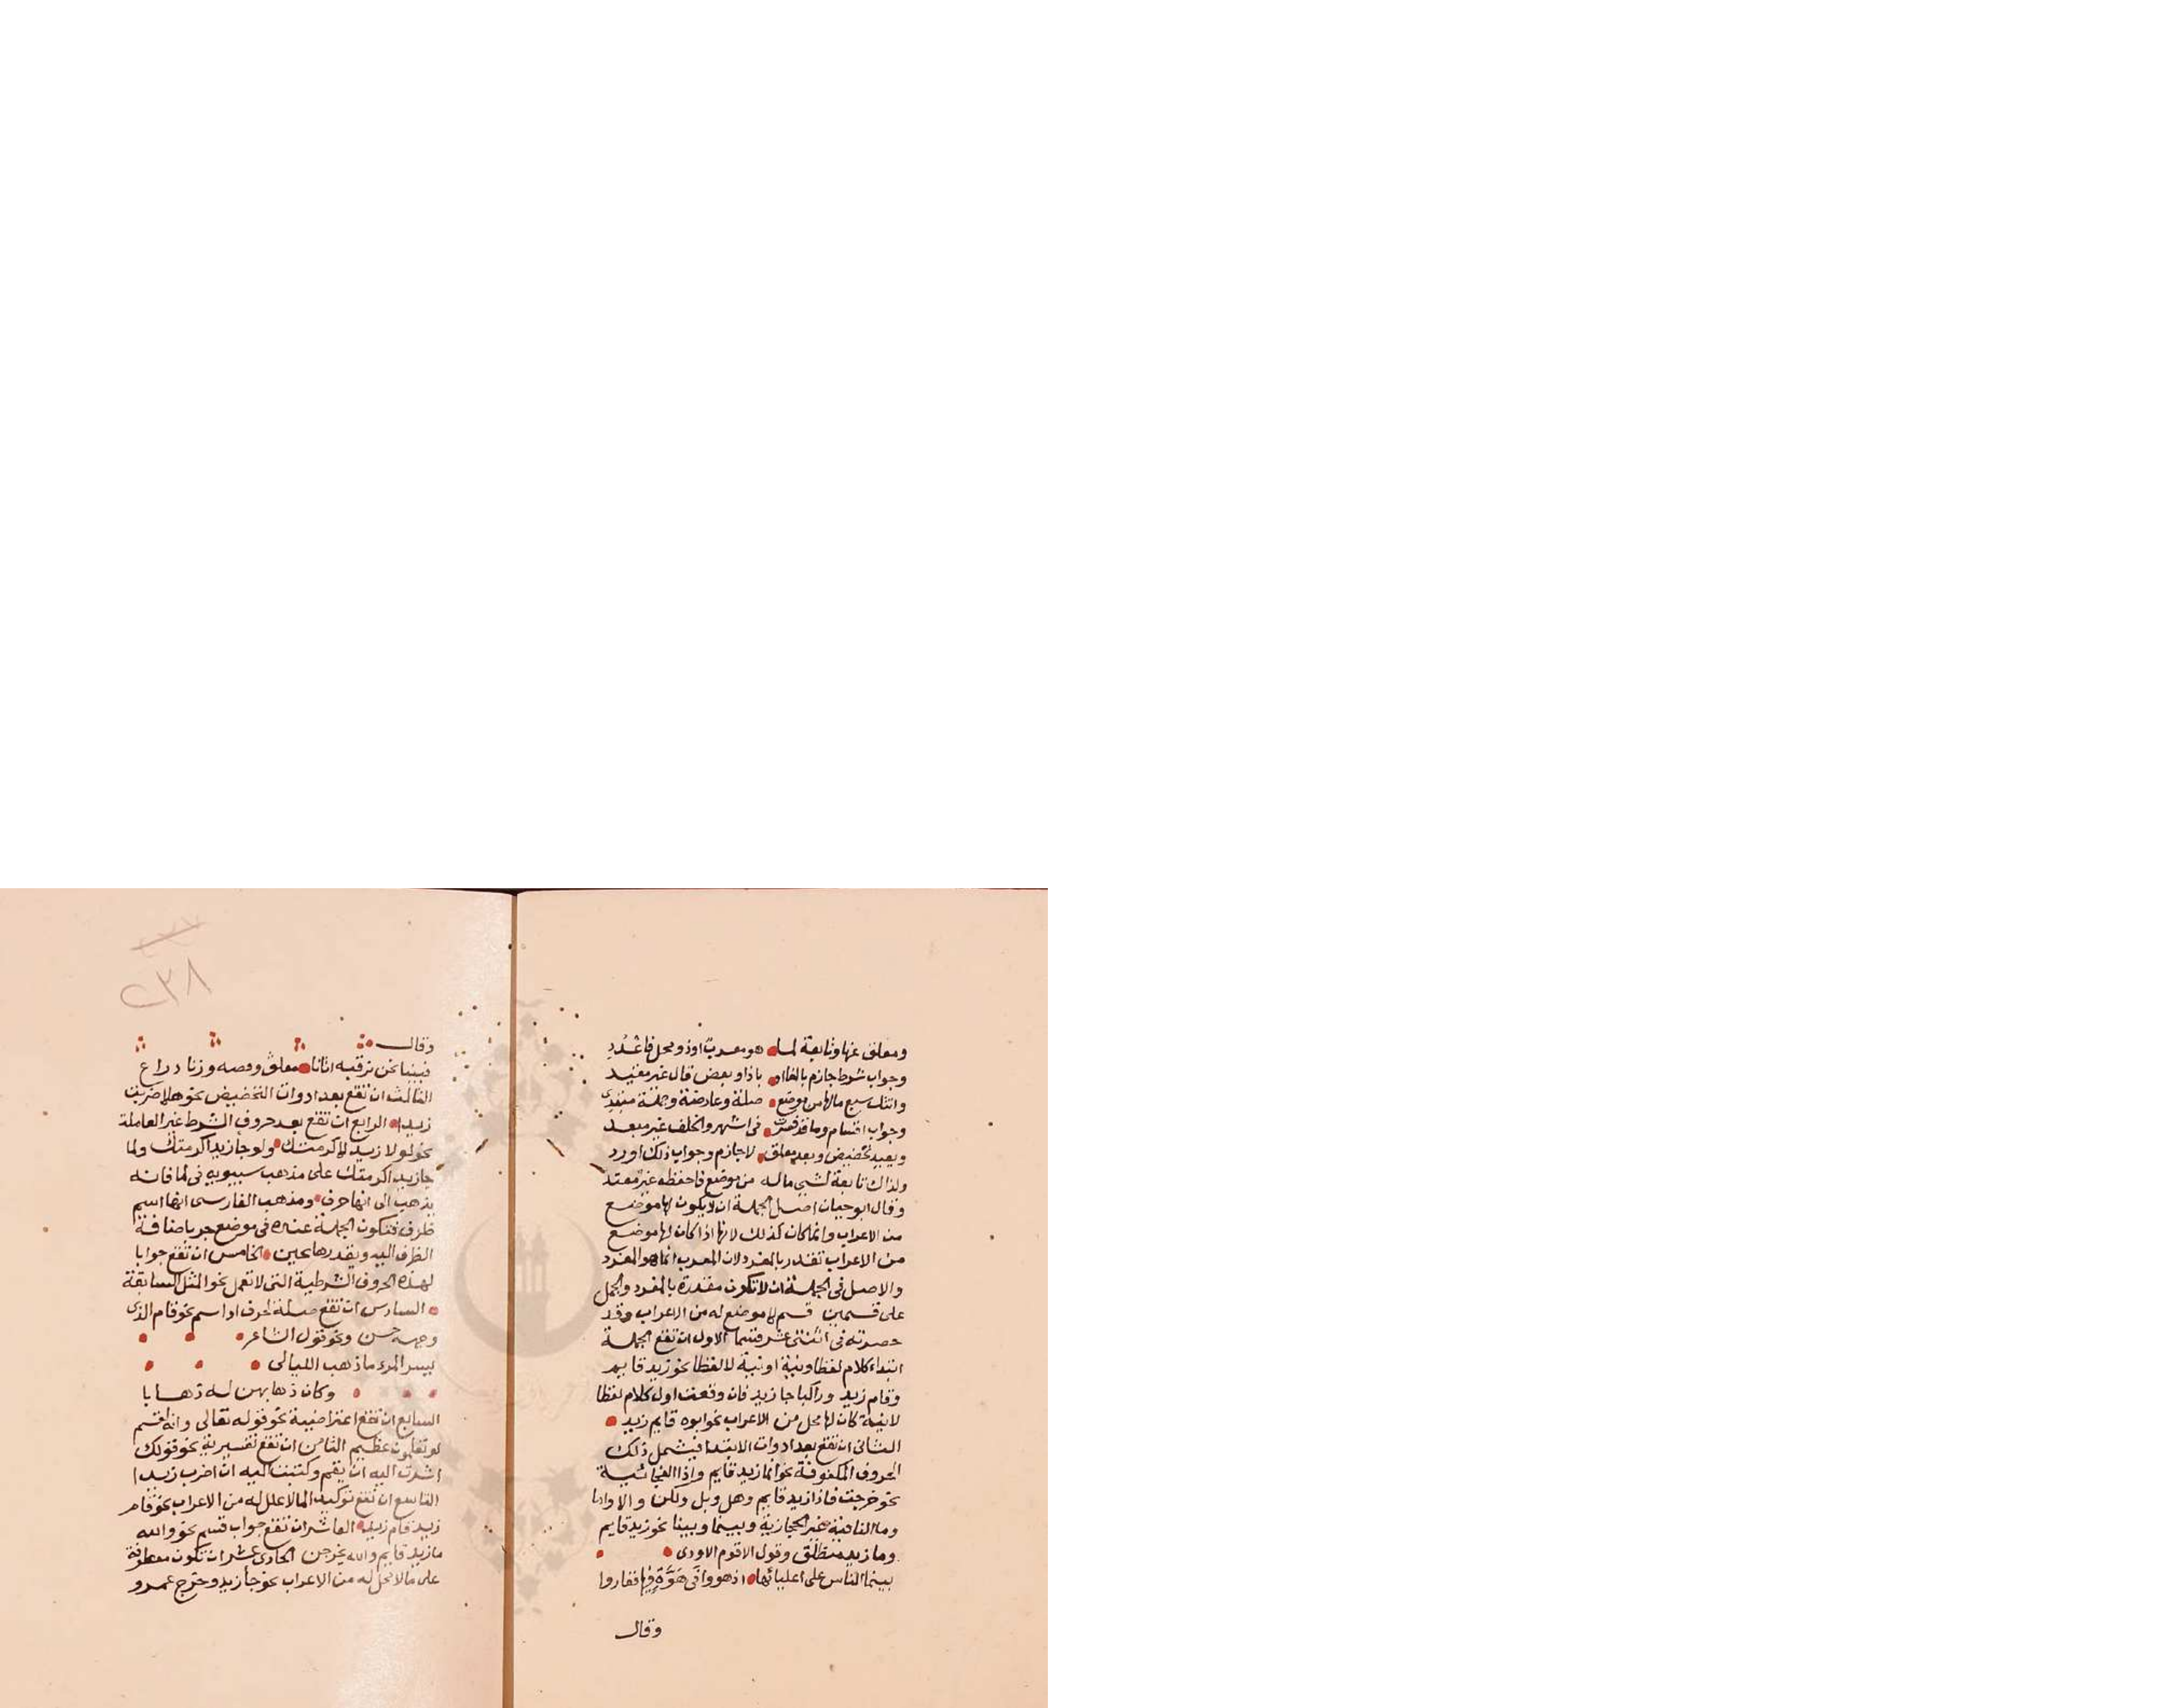 ومعلق عنها وتابعة لما هو معرب او ذو محل فاعدد
وجواب شرط جازم بالفا او باذا وبعض قال غير مفيد
واتتك سبع مالها من موضع صلة وعارضة وجملة مبتدى
وجواب اقسام وما قد فسرت فى اشهر والخلف غير مبعد
وبعيد تحضيض وبعد معلق لا جازم وجواب ذلك اورد
ولذاك تابعة لشى ماله من موضع فاحفظه غير مفند
وقال ابوحيان اصل الجملة ان لا يكون لها موضع
من الاعراب وانما كان كذلك لانها اذا كان لها موضع
من الاعراب تقدر بالمفرد لان المعرب انما هو المفرد
والاصل فى الجملة ان لا تكون مقدرة بالمفرد والجمل
على قسمين قسم لا موضع له من الاعراب وقد
حصرته فى اثنتى عشر قسما الاول ان تقع الجملة
ابتداء كلام لفظا ونية او نية لا لفظا نحو زيد قايم
وقام زيد وراكبا جا زيد فان وقعت اول كلام لفظا
لا نية كان لها محل من الاعراب نحو ابوه قايم زيد
الثانى ان تقع بعد ادوات الابتدا فيشمل ذلك
الحروف المكفوفة نحو انما زيد قايم واذا الفجائية
نحو خرجت فاذا زيد قايم وهل وبل ولكن والا واما
وما النافية غير الحجازية وبينما وبينا نحو زيد قايم
وما زيد منطلق وقول الافوه الاودى
بينما الناس على اعليائها اذ هووا فى هَوَّةٍ فيها فغاروا
وقال
٢٣٨
وقال
فبينا نحن نرقبه اتانا معلق وفصه وزناد راع
الثالث ان تقع بعد ادوات التحضيض نحو هلا ضربت
زيدا الرابع ان تقع بعد حروف الشرط غير العاملة
نحو لولا زيد لاكرمتك ولو جا زيد اكرمتك ولما
جا زيد اكرمتك على مذهب سيبويه فى لما فانه
يذهب الى انها حرف ومذهب الفارسى انها اسم
ظرف فتكون الجملة عنده فى موضع جر باضافة
الظرف اليه ويقدرها بحين الخامس ان تقع جوابا
لهذه الحروف الشرطية التى لا تعمل نحو المثل السابقة
السادس ان تقع صلة لحرف او اسم نحو قام الذى
وجهه حسن ونحو قول الشاعر
يسر المرء ما ذهب الليالى
وكان ذهابهن له ذهابا
السابع ان تقع اعتراضية نحو قوله تعالى وانه لقسم
لو تعلمون عظيم الثامن ان تقع تفسيرية نحو قولك
اشرت اليه ان يقم وكتبت اليه ان اضرب زيدا
التاسع ان تقع توكيدا لما لا محل له من الاعراب نحو قام
زيد قام زيد العاشر ان تقع جواب قسم نحو والله
ما زيد قايم والله يخرجن الحادى عشر ان تكون معطوفة
على ما لا محل له من الاعراب نحو جا زيد وخرج عمرو